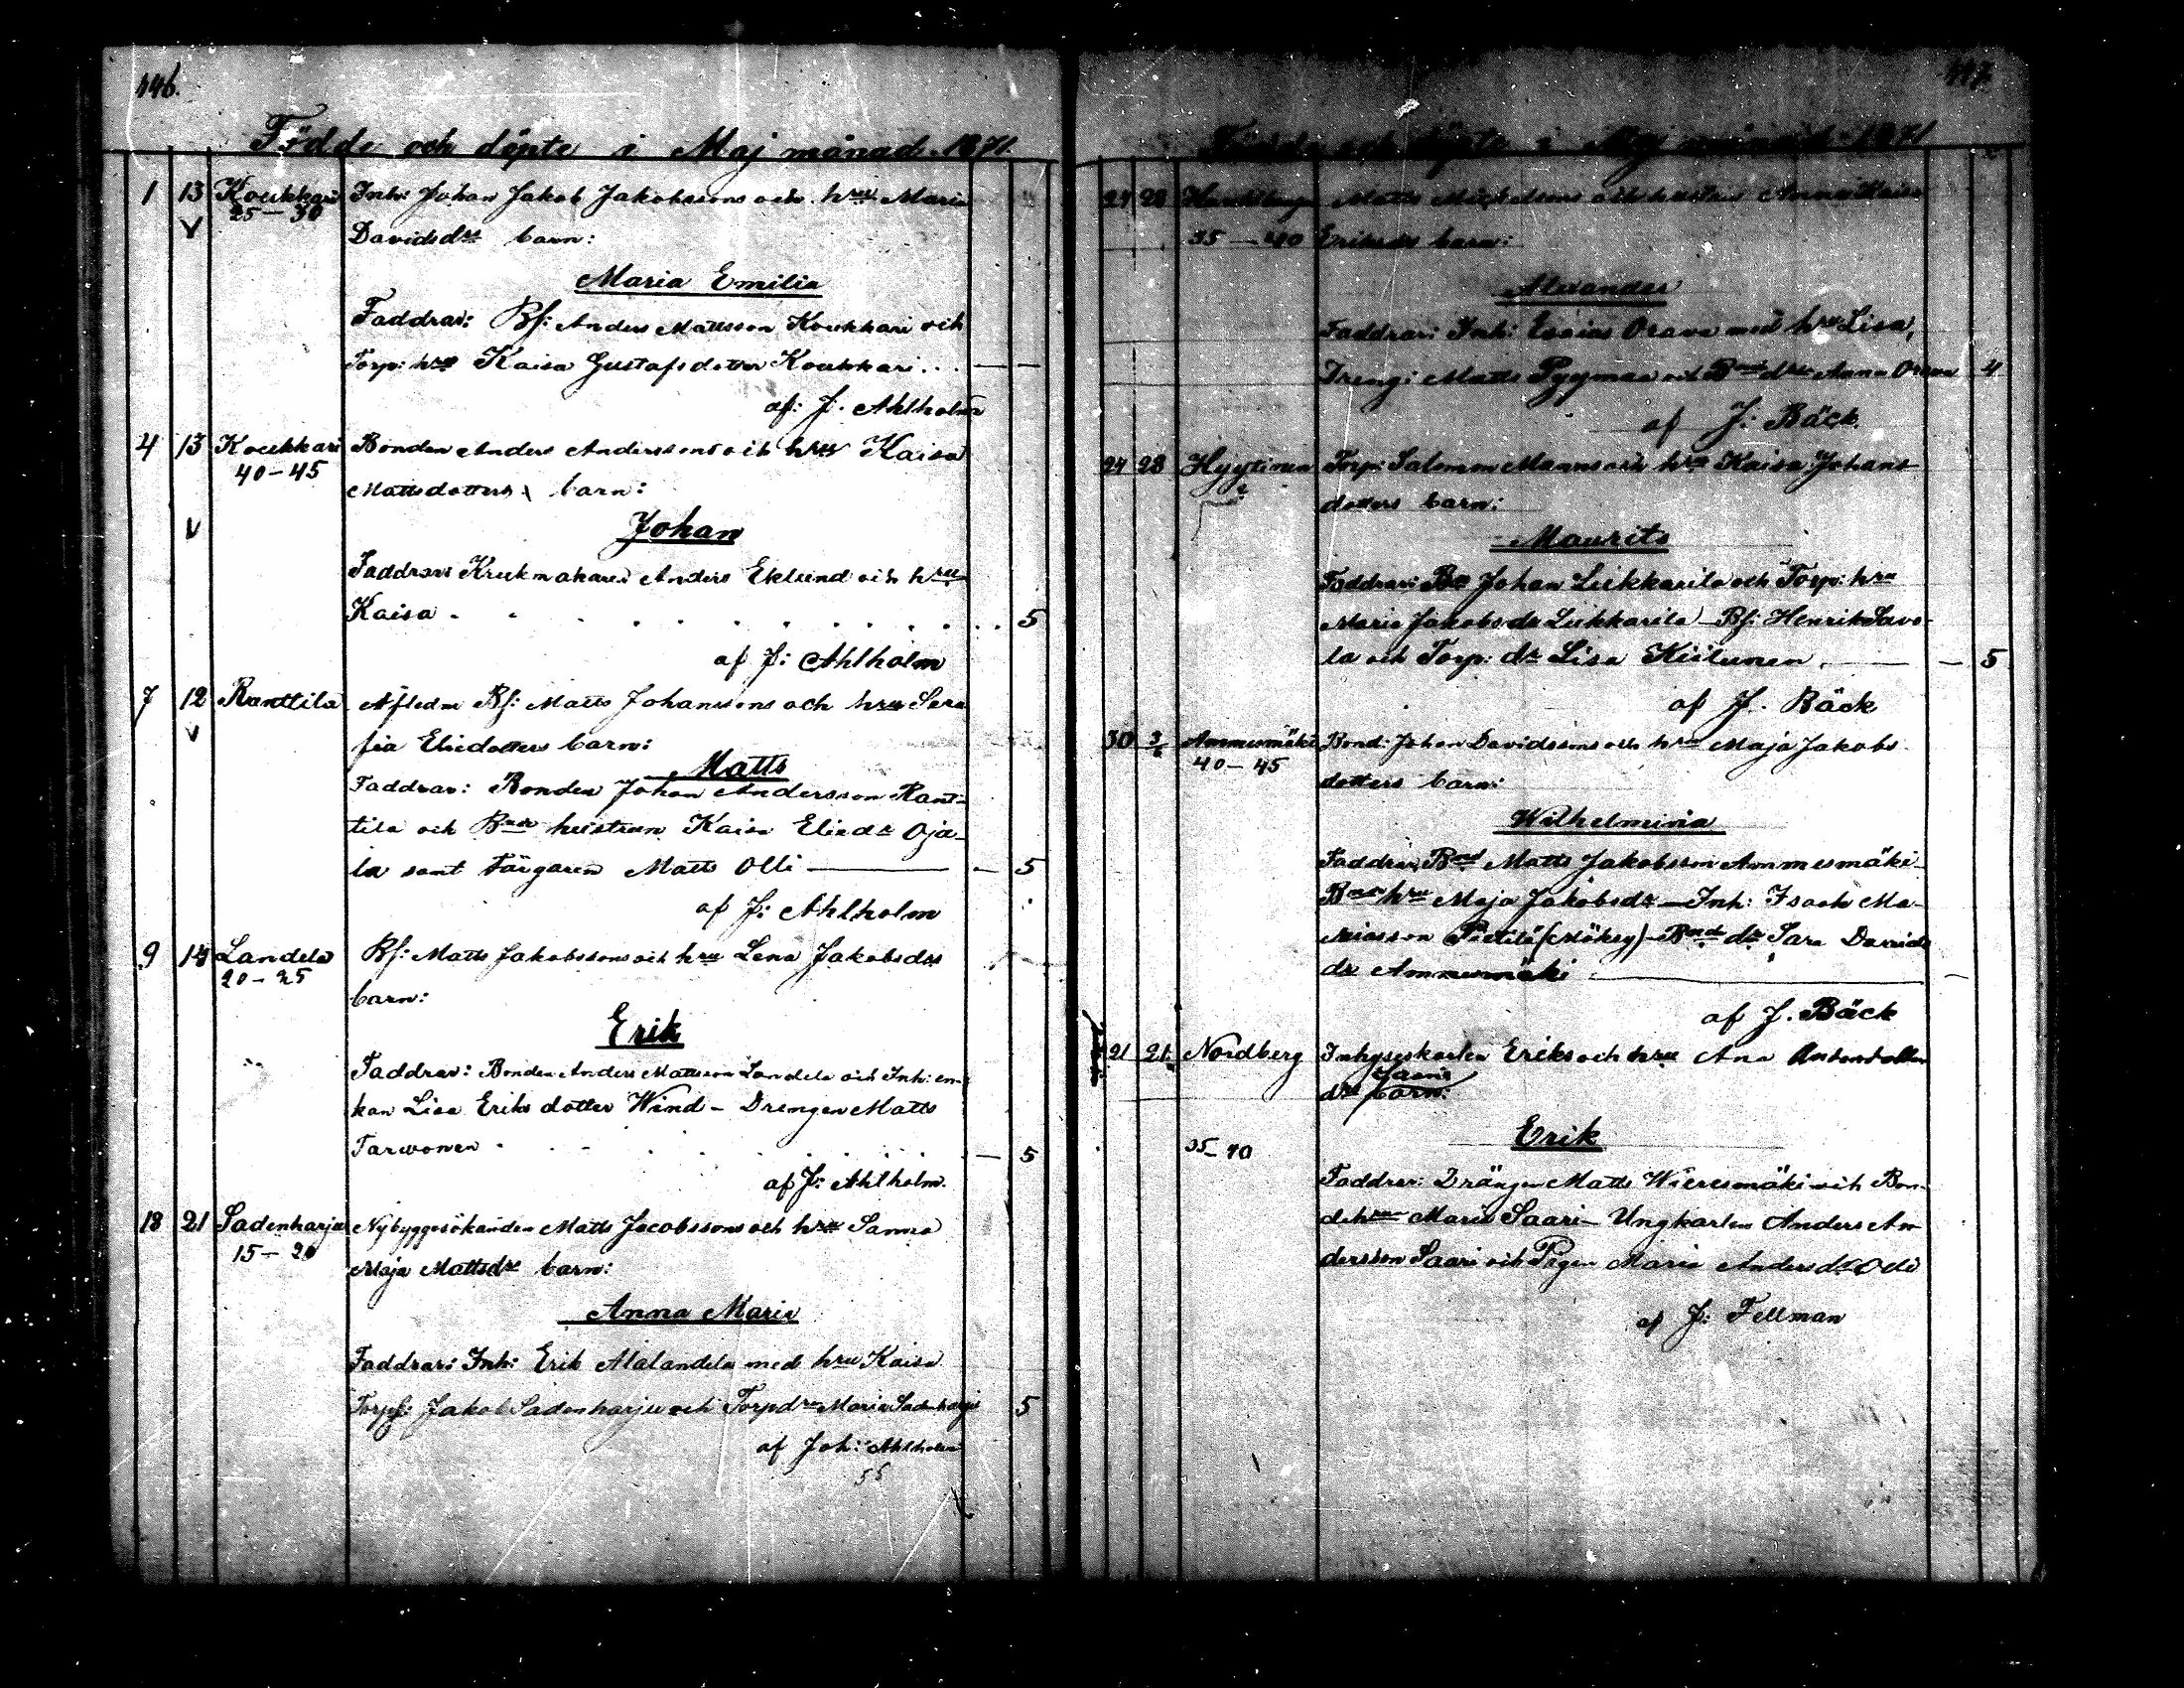 146.
Födde och döpte i Maj månad. 1871.
1 13 Koukkari Inh: Johan Jakob Jakobssons och hru Maria
25–30
V Davidsdrs barn:
Maria Emilia
Faddrar: Bf: Anders Mattsson Koukkari och
Torp: hru Kaisa Gustafsdotter Koukkari . . . — —
af: J. Ahlholm
4 13 Koukkari Bonden Anders Anderssons och hrus Kaisa
40–45
Mattsdotters barn:
V Johan
Faddrar: Krukmakaren Anders Eklund och hru
Kaisa . . . . . . . . . . . 5
af J: Ahlholm
7 12 Ranttila Afledne Bf: Matts Johanssons och hru Sera
V fia Eliedotters barn:
Matts
Faddrar: Bonden Johan Andersson Rant-
tila och Bnde hustrun Kaisa Eliedr Oja-
la samt färgaren Matts Olli — — 5
af J: Ahlholm
9 14 Landela Bf: Matts Jakobssons och hru Lena Jakobsdrs
20–25
barn:
Erik
Faddrar: Bonden Anders Mattsson Landela och Inh: en-
kan Lisa Eriksdotter Wind – Drengen Matts
Tarwonen . . . . . . . . — 5
af J: Ahlholm.
18 21 Sadenharju Nybyggesökanden Matts Jacobssons och hru Sanna
15–20
Maja Mattsdrs barn:
Anna Maria
Faddrar: Inh: Erik Alalandela med hru Kaisa
Torpf: Jakob Sadenharju och Torpdr Maria Sadenharju 5
af Joh: Ahlholm
55
147.
Födde och döpte i Maj månad 1871
24 28 Matts Michelsons och hustrus Anna Kaisa
35–40 Eriksdrs barn:
Alexander
Faddrar: Inh: Esaias Orava med hru Lisa,
Dreng: Matts Pyymaa och Bnde dr Anna Orava 4
af J: Bäck.
24 28 Hyytinen Torp: Salomon Manns och hru Kaisa Johans-
dotters barn:
Maurits
Faddrar: Bn Johan Liikkarila och Torp: hru
Maria Jakobsdr Liikkarila – Bf: Henrik Savo-
la och Torp: dr Lisa Kiilunen. — — 5
af J. Bäck
30 3/6 Ammesmäki Bond: Johan Davidssons och hru Maja Jakobs-
40–45
dotters barn:
Wilhelmina
Faddrar: Bnd Matts Jakobsson Ammesmäki –
Bnde hru Maja Jakobsdr – Inh: Isaak Ma-
Pietilä – Bnd dr Sara Davids
dr Ammesmäki —
af J. Bäck
21 21 Nordberg Inhyseskarlen Eriks och hru Ana
Saaris
drs barn:
Erik
35–40
Faddrar: Drängen Matts Wieresmäki och Bon-
de hru Maria Saari – Ungkarlen Anders An-
dersson Saari och Pigan Maria Andersdr Olli
af J: Fellman